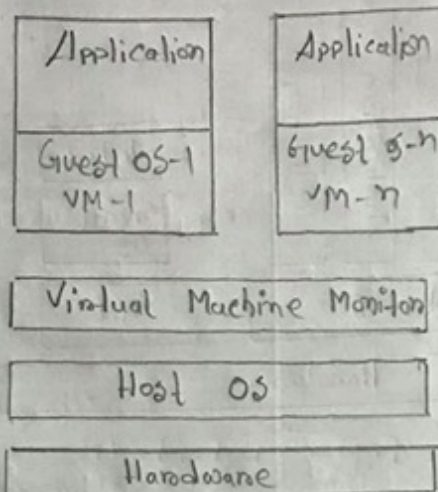 Application
Guest OS-1
VM-1
Application
Guest S-n
VM-n
Virtual Machine Monitor
Host OS
Hardware